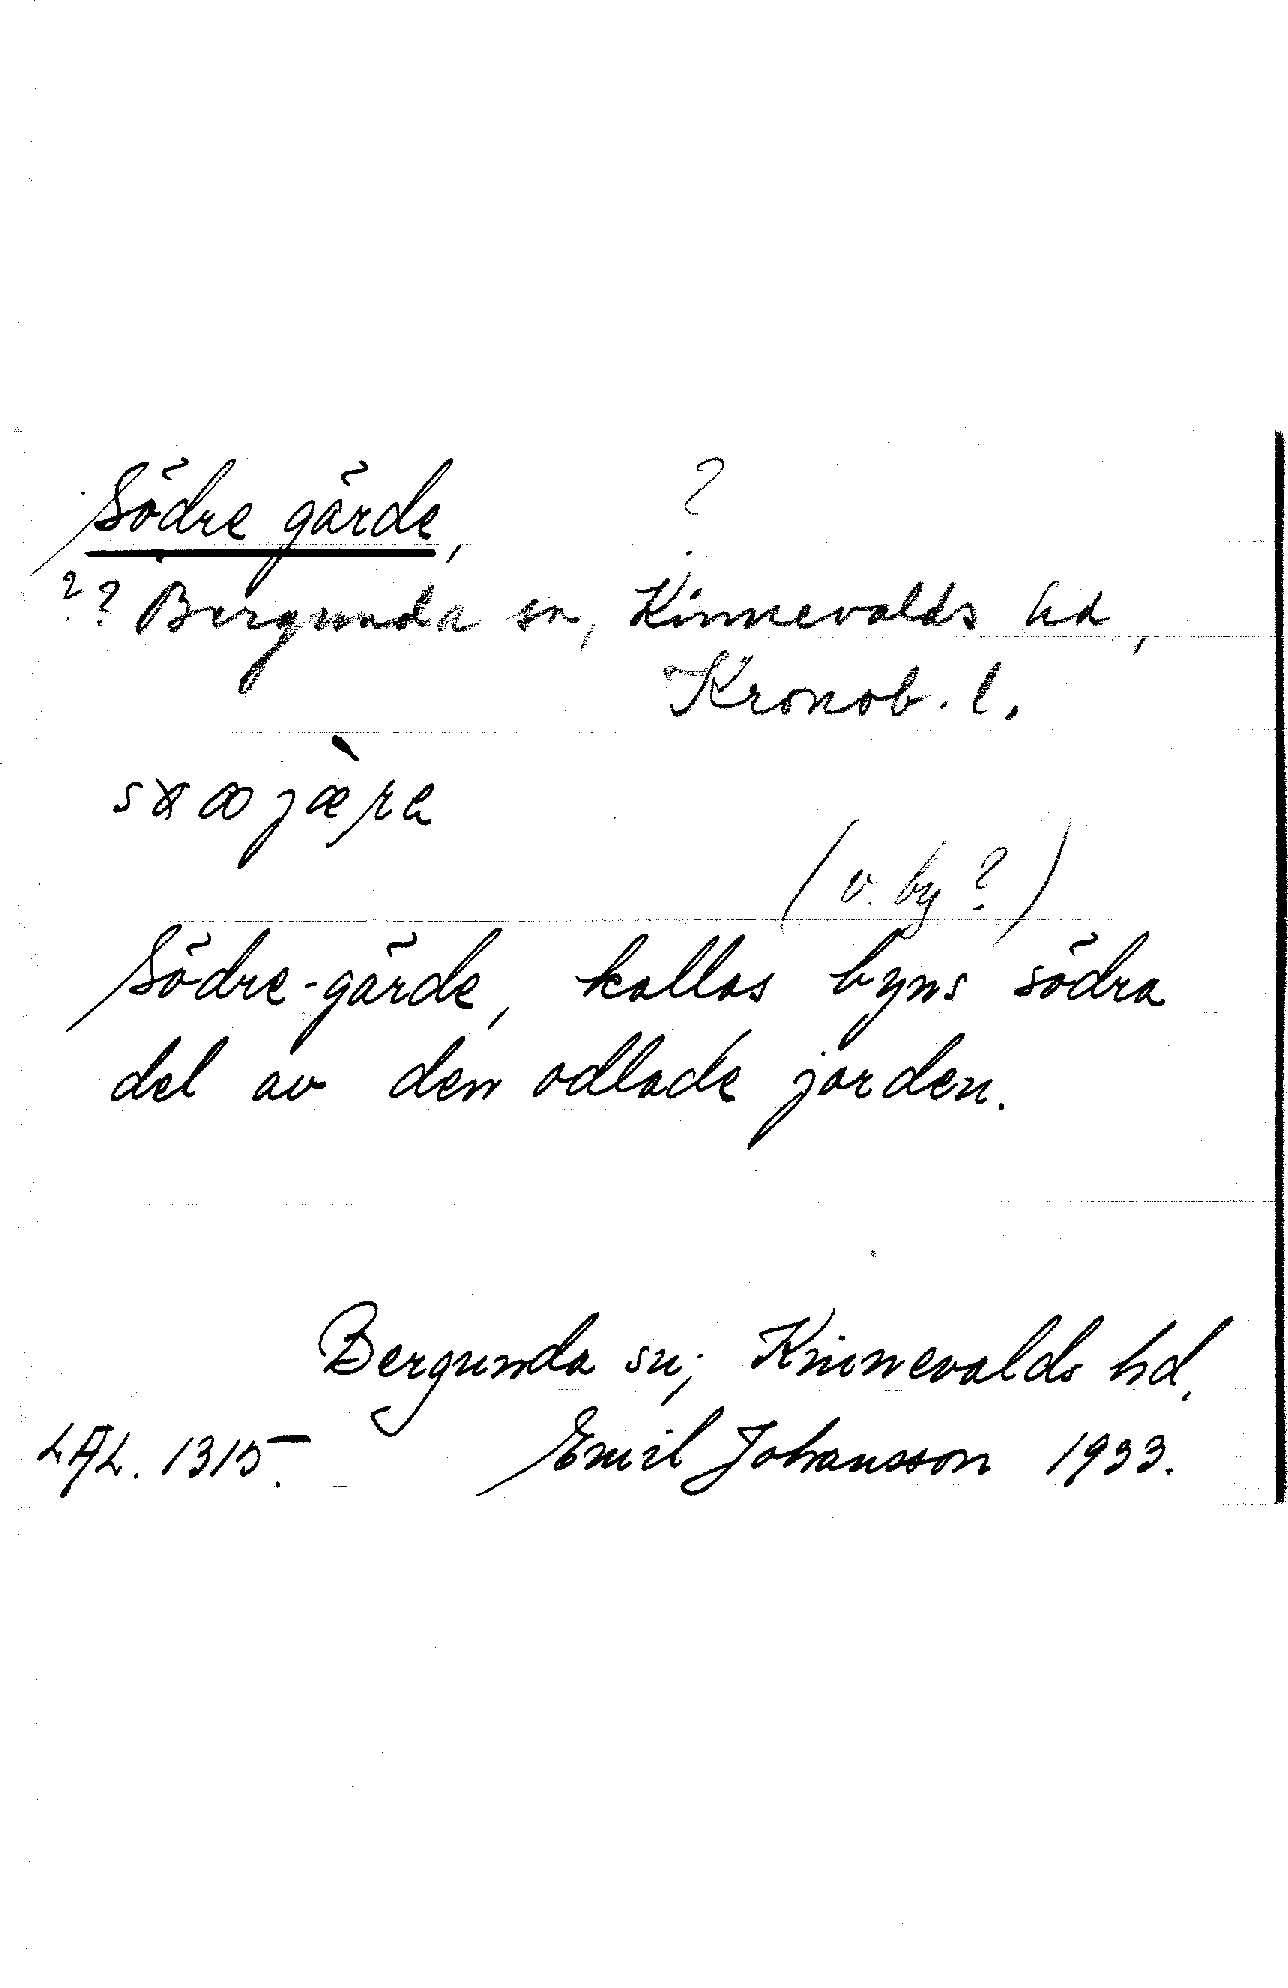 Södre gärde, ?
?? Bergunda sn, Kinnevalds hd,
Kronob. l.
(v. by?)
Södre-gärde, kallas byns södra
del av den odlade jorden.
Bergunda sn; Kinnevalds hd,
LAL. 1315. Emil Johansson 1933.